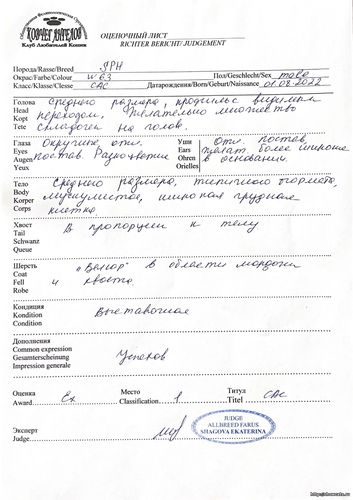 КОВЧЕГ АНГЕЛОВ
Клуб Любителей Кошек
ОЦЕНОЧНЫЙ ЛИСТ
RICHTER BERICHT/ JUDGEMENT
Порода/Rasse/Breed ЯРН
Пол/Geschlecht/Sex male
Окрас/Farbe/Colour w 63
Класс/Klasse/Clesse САС Датарождения/Born/Geburt/Naissance 01.08.2022
Голова среднего размера, профиль с видимым
Head переходом, желательно множество
Kopt складочек на голов.
Tete
Глаза Округлые, отл.
Eyes постав. Разноцветие
Augen
Yeux
Уши Отл. постав,
Ears желат. более широкие
Ohren в основании.
Orielles
Тело Среднего размера, типичного формата,
Body мускулистое, широкая грудная
Korper клетка
Corps
Хвост В пропорции к телу
Tail
Schwanz
Queue
Шерсть "Велюр" в области мордочки
Coat и хвоста
Fell
Robe
Кондиция Выставочная
Kondition
Condition
Дополнения
Common expression Успехов
Gesamterscheining
Impression generale
Оценка Ex Место 1 Титул САС
Award Classification. Titel
Эксперт
Judge
JUDGE
ALLBREED FARUS
SHAGOVA EKATERINA